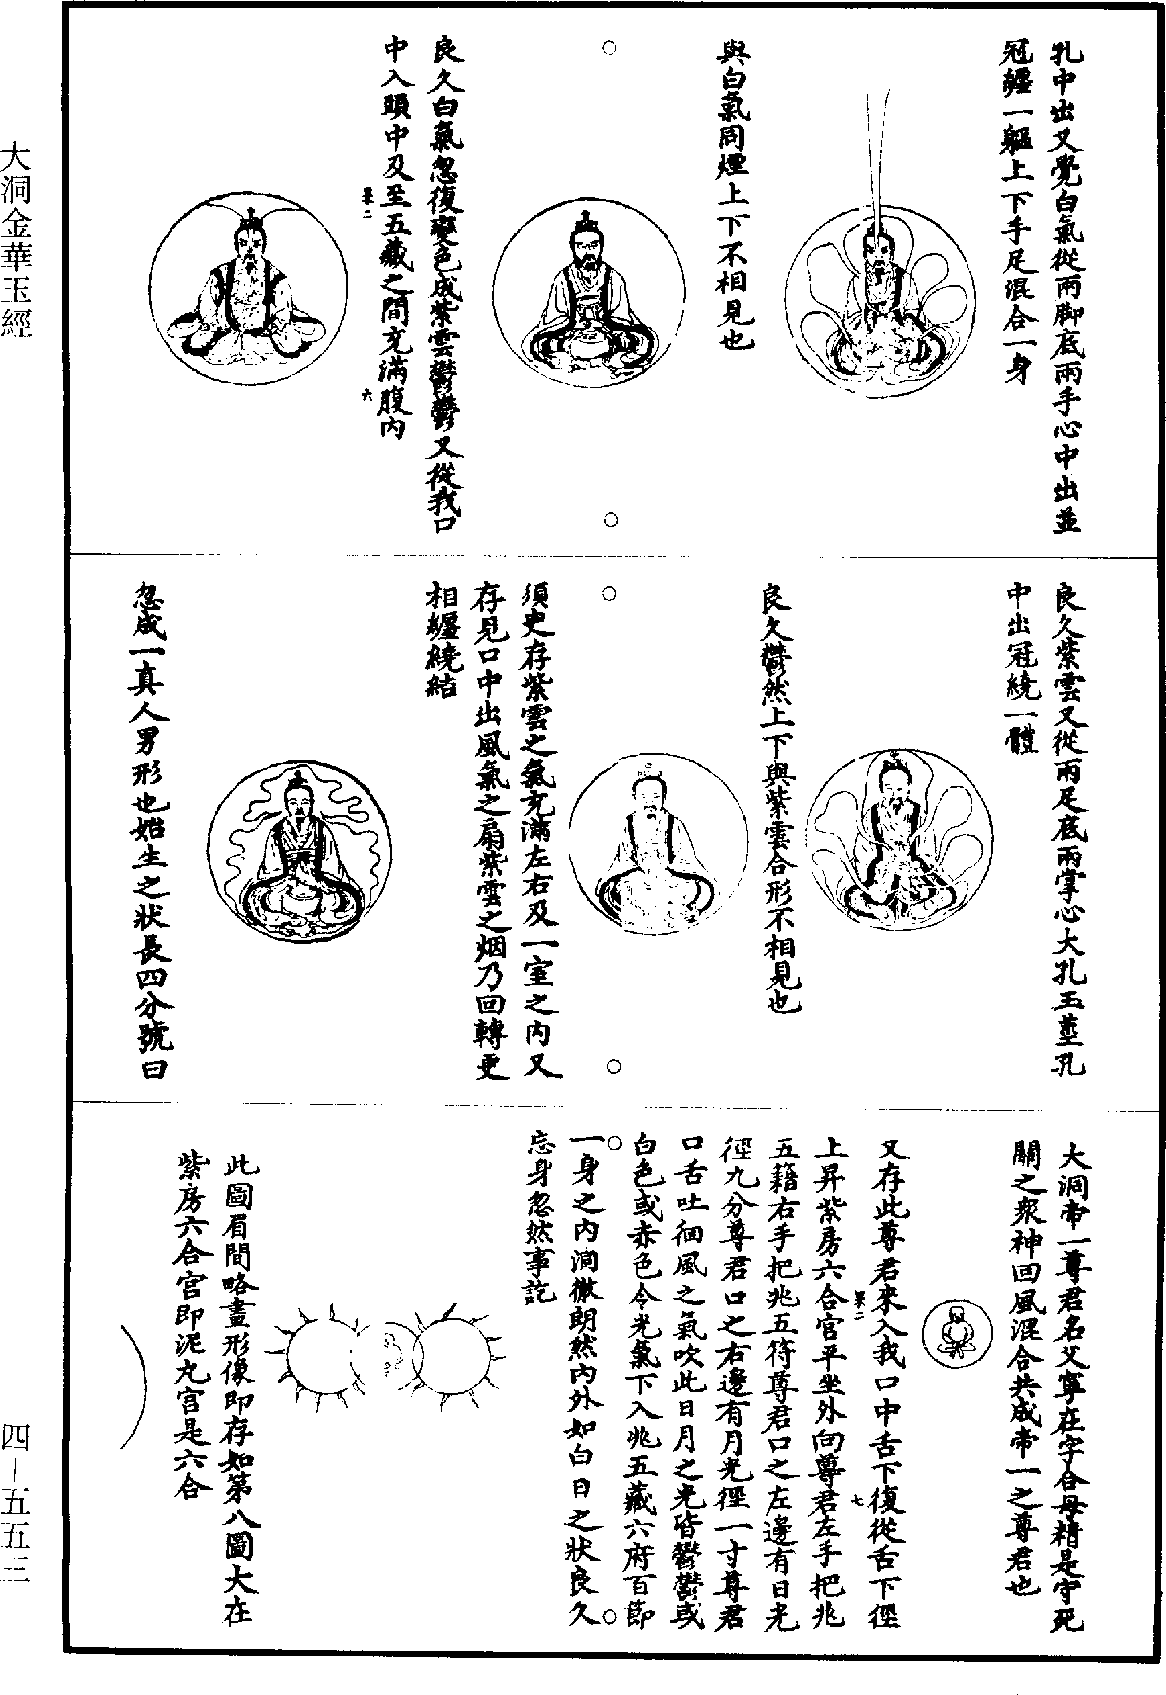 大洞金華玉經
四—五五三
孔中出又覺白氣從兩脚底兩手心中出並
冠纏一軀上下手足混合一身
與白氣同煙上下不相見也
良久白氣忽復變色成紫雲鬱鬱又從我口
中入頭中及至五藏之間充滿腹內
良久紫雲又從兩足底兩掌心大孔玉莖孔
中出冠繞一體
良久鬱然上下與紫雲合形不相見也
須臾存紫雲之氣充滿左右及一室之內又
存見口中出風氣之扇紫雲之烟乃回轉更
相纏繞結
忽成一真人男形也始生之狀長四分號曰
大洞帝一尊君名父寧在字合母精是守死
關之衆神回風混合共成帝一之尊君也
又存此尊君來入我口中舌下復從舌下徑
上昇紫房六合宮平坐外向尊君左手把兆
五籍右手把兆五符尊君口之左邊有日光
徑九分尊君口之右邊有月光徑一寸尊君
口舌吐徊風之氣吹此日月之光皆鬱鬱或
白色或赤色令光氣下入兆五藏六府百節
一身之內洞徹朗然內外如白日之狀良久
忘身忽然事訖
此圖眉間略畫形像即存如第八圖大在
紫房六合宮即泥丸宮是六合